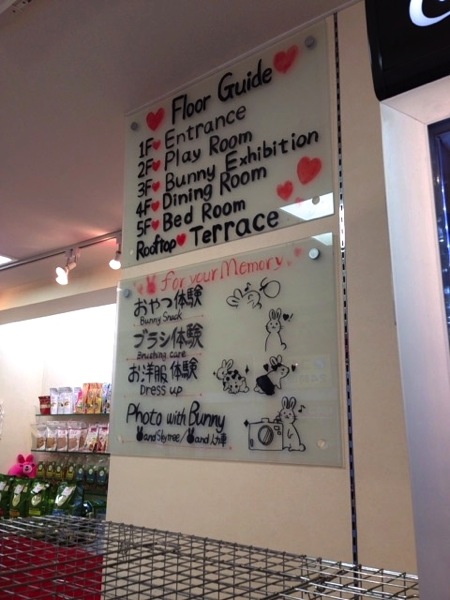 Floor Guide
1F Entrance
2F Play Room
3F Bunny Exhibition
4F Dining Room
5F Bed Room
Rooftop Terrace
For your Memory
おやつ体験
Bunny Snack
ブラシ体験
Brushing care
お洋服体験
Dress up
Photo with Bunny
and Skytree/ and 人力車